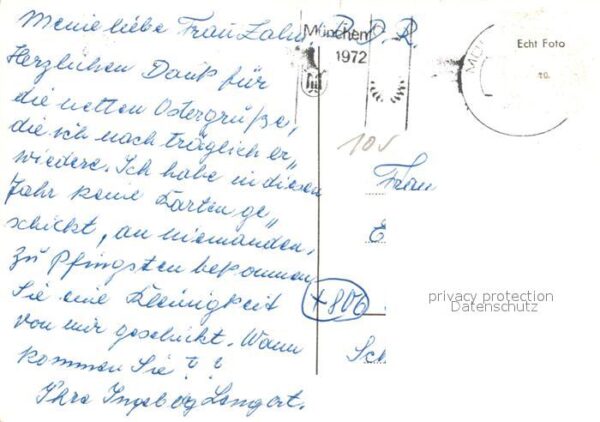 Meine liebe Frau Zahn,
Herzlichen Dank für
die netten Ostergrüße,
die ich nach träglich er„
wiedere. Ich habe in diesem
Jahr keine Karten ge„
schickt, an niemanden.
Zu Pfingsten bekommen
Sie eine Kleinigkeit
von mir geschickt. Wann
kommen Sie ? ?
Ihre Ingeborg Langert.
D.D.R.
München
1972
MÜ
Echt Foto
10v
Frau
E
+806
Sch
privacy protection
Datenschutz